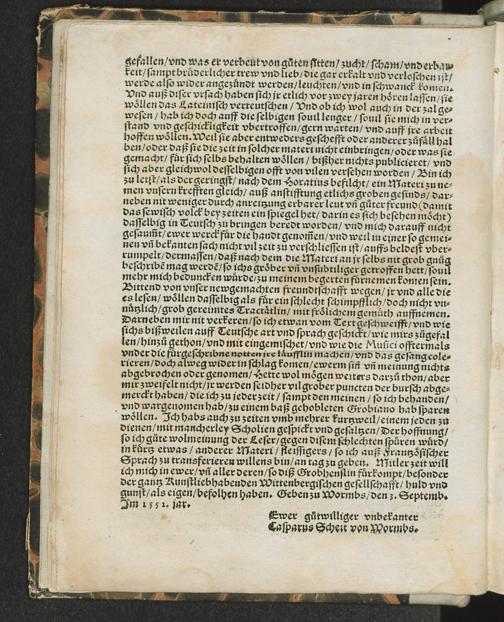 gefallen/vnd was er verbeut von gůten sitten/zucht/scham/vnd erbar-
keit/sampt brüderlicher trew vnd lieb/die gar erkalt vnd verloschen ist/
werde also wider angezündt werden/leuchten/vnd in schwanck komen.
Vnd auß diser vrsach haben sich jr etlich vor zwey jaren hören lassen/sie
wöllen das Lateinisch verteutschen/Vnd ob ich wol auch in der zal ge-
wesen/hab ich doch auff die selbigen souil lenger/souil sie mich in ver-
stand vnd geschickligkeit vbertroffen/gern warten/vnd auff jre arbeit
hoffen wöllen. Weil sie aber entweders geschefft oder anderer zůfäll hal
ben/oder daß sie die zeit in solcher materi nicht einbringen/oder was sie
gemacht/für sich selbs behalten wöllen/bißher nichts publicieret/vnd
sich aber gleichwol desselbigen offt von vilen versehen worden/Bin ich
zu letst/als der geringst/nach dem Horatius befilcht/ein Materi zu ne-
men vnsern krefften gleich/auß anstifftung etlichs groben gesinds/dar-
neben nit weniger durch anreitzung erbarer leut vñ gůter freund (damit
das sewisch volck bey zeiten ein spiegel het/darin es sich besehen möcht)
dasselbig in Teutsch zu bringen beredt worden/vnd mich darauff nicht
gesaumt/ewer werck für die handt genom̃en/vnd weil in einer so gemei-
nen vñ bekanten sach nicht vil zeit zu verschliessen ist/auffs beldest vber-
rumpelt/dermassen/daß nach dem die Materi an jr selbs mit grob gnůg
beschribẽ mag werdẽ/so ichs gröber vñ vnsubtiliger getroffen hett/souil
mehr mich beduncken würde/zu meinem begerten fürnemen komen sein.
Bittend von vnser newgemachten freundtschafft wegen/jr vnd alle die
es lesen/wöllen dasselbig als für ein schlecht schimpflich/doch nicht vn-
nützlich/grob gereimtes Tractätlin/mit frölichem gemüth auffnemen.
Darneben mir nit verkeren/so ich etwan vom Text geschweifft/vnd wie
sichs bißweilen auff Teutsche art vnd sprach geschickt/wie mirs zůgefal
len/hinzů gethon/vnd mit eingemischet/vnd wie die Musici offtermals
vnder die fürgeschribne notten jre läufflin machen/vnd das gesang cole-
rieren/doch alweg wider in schlag komen/ewerm sin̄ vñ meinung nichts
abgebrochen oder genomen/Hette wol mögen weiters darzů thon/aber
mir zweifelt nicht/jr werden seidher vil grober puncten der bursch abge-
merckt haben/die ich zu jeder zeit/sampt den meinen/so ich behanden/
vnd wargenomen hab/zu einem baß gehobleten Grobiano hab sparen
wöllen. Ich habs auch zu zeiten vmb mehrer kurtzweil/einem jeden zu
dienen/mit mancherley Scholien gespickt vnd gesaltzen/Der hoffnung/
so ich gůte wolmeinung der Leser/gegen disem schlechten spüren würd/
in kürtz etwas/anderer Materi/fleissigers/so ich auß Frantzösischer
Sprach zu transferieren willens bin/an tag zu geben. Mitler zeit will
ich mich in ewer/vñ aller deren/so diß Grobhenslin fürkompt/besonder
der gantz Kunstliebhabenden Wittenbergischen gesellschafft/huld vnd
gunst/als eigen/befolhen haben. Geben zu Wormbs/den 3. Septemb.
Im 1551. jar.
Ewer gůtwilliger vnbekanter
Casparus Scheit von Wormbs.